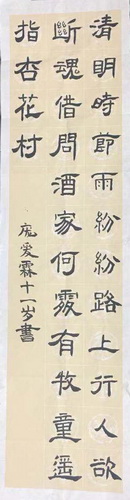 清明時節雨紛紛路上行人欲
斷魂借問酒家何處有牧童遥
指杏花村
庞爱霖十一岁書